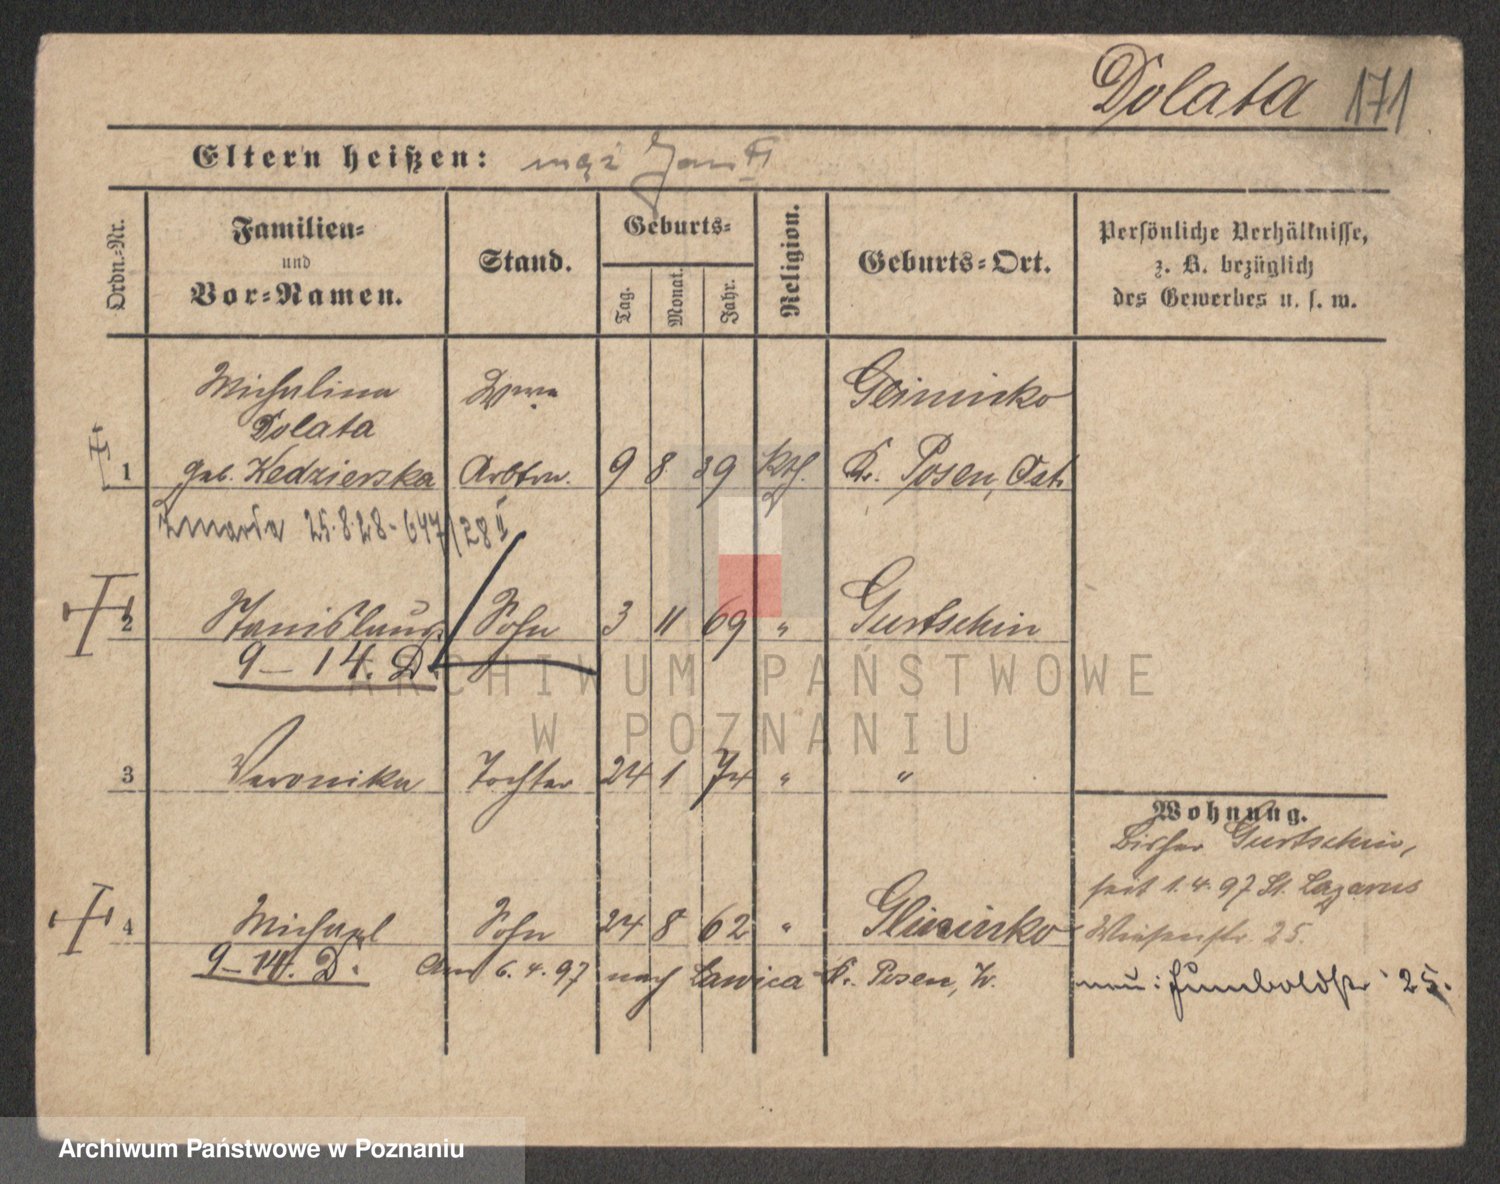 Dolata 171
Eltern heißen: mąż Jan II
Ordn.-Nr.
Familien-
und
Vor-Namen.
Stand.
Geburts-
Tag.
Monat.
Jahr.
Religion.
Geburts-Ort.
Persönliche Verhältnisse,
z. B. bezüglich
des Gewerbes u. s. w.
Michalina Wwe
Dolata
1 geb. Kedzierska Arbtrn. 9 8 39 kth. Kr. Posen, Ost
Zmarła 25.8.28 - 647/28 II
2 Stanislaus Sohn 3 11 69 " Gurtschin
9-14. D.
3 Veronika Tochter 24 1 74 " "
Wohnung.
Bisher Gurtschin,
seit 1.4.97 St. Lazarus
4 Michael Sohn 24 8 62 " Glinienko
Wiesenstr. 25.
9-14. D.
Am 6.4.97 nach Lawica Kr. Posen, W.
neu: Humboldstr 25.
ARCHIWUM PAŃSTWOWE
W POZNANIU
Archiwum Państwowe w Poznaniu